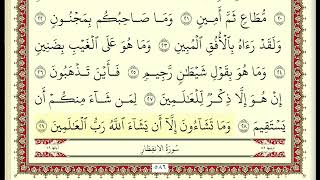 مُطَاعٍ ثَمَّ أَمِينٍ ٢١ وَمَا صَاحِبُكُم بِمَجْنُونٍ
٢٢ وَلَقَدْ رَءَاهُ بِٱلْأُفُقِ ٱلْمُبِينِ ٢٣ وَمَا هُوَ عَلَى ٱلْغَيْبِ بِضَنِينٍ
٢٤ وَمَا هُوَ بِقَوْلِ شَيْطَٰنٍ رَّجِيمٍ ٢٥ فَأَيْنَ تَذْهَبُونَ ٢٦
إِنْ هُوَ إِلَّا ذِكْرٌ لِّلْعَٰلَمِينَ ٢٧ لِمَن شَآءَ مِنكُمْ أَن
يَسْتَقِيمَ ٢٨ وَمَا تَشَآءُونَ إِلَّآ أَن يَشَآءَ ٱللَّهُ رَبُّ ٱلْعَٰلَمِينَ ٢٩
سُورَةُ الانفِطَار
٥٨٦